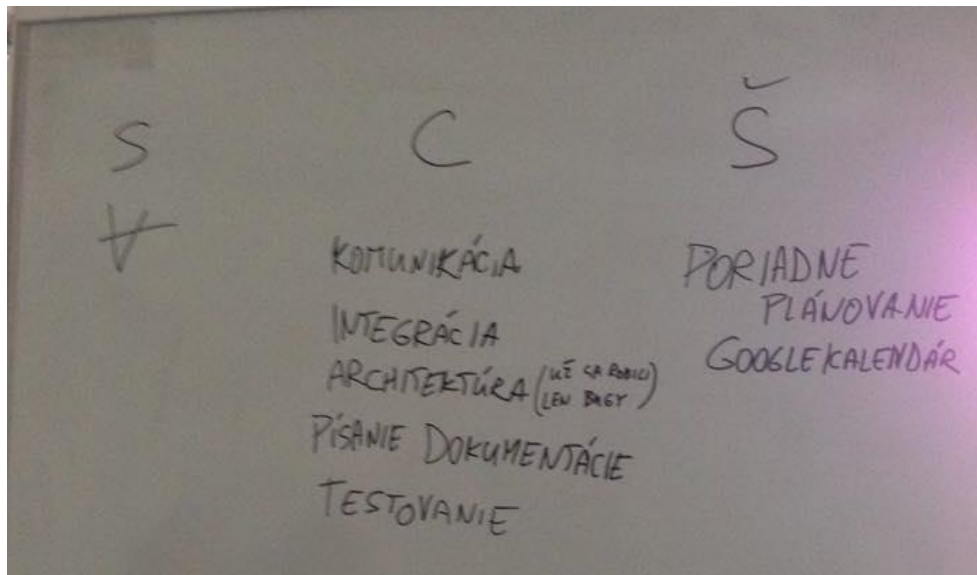 S C Š
∀
KOMUNIKÁCIA
INTEGRÁCIA
ARCHITEKTÚRA (UŽ SA ROBILI
LEN BUGY)
PÍSANIE DOKUMENTÁCIE
TESTOVANIE
PORIADNE
PLÁNOVANIE
GOOGLE KALENDÁR